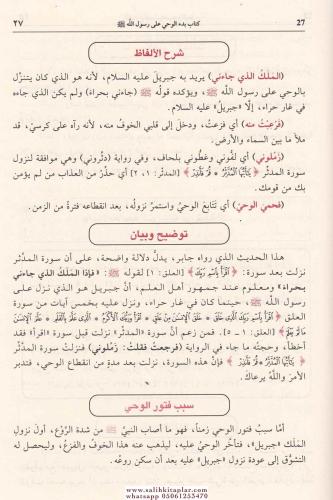 27 كتاب بدء الوحي على رسول الله ﷺ ٢٧
شرح الألفاظ
(المَلَكُ الذي جاءني) يريد به جبريلَ عليه السلام، لأنه هو الذي كان يتنزَّل
بالوحي على رسول الله ﷺ، ويؤكده قولُه ﷺ (جاءني بحراء) ولم يكن الذي جاءه
في غار حراء، إلَّا «جبريل» عليه السلام.
(فَرَعِبْتُ منه) أي فزعتُ، ودخلَ إلى قلبي الخوفُ منه، لأنه رآه على كرسيّ، قد
ملأ ما بين السماء والأرض.
(زمِّلوني) أي لفُّوني وغطوني بلحاف، وفي رواية (دثّروني) وهي موافقة لنزول
سورة المدثّر ﴿يَٰٓأَيُّهَا ٱلْمُدَّثِّرُ * قُرْ فَأَنذِرْ﴾ [المدثر: ١، ٢] أي حذّر من العذاب من لم يؤمن
بك من قومك.
(فحمي الوحيُ) أي تتابَع الوحيُ واستمرَّ نزولُه، بعد انقطاعه فترةً من الزمن.
توضيح وبيان
هذا الحديث الذي رواه جابر، يدلُّ دلالة واضحة، على أن سورة المدَّثر
نزلت بعد سورة: ﴿ٱقْرَأْ بِٱسْمِ رَبِّكَ﴾ [العلق: ١] لقوله ﷺ: «فإذا المَلَكُ الذي جاءني
بحراء» ومعلوم عند جمهور أهل العلم، أن جبريل هو الذي نزل على
رسول الله ﷺ، حينما كان في غار حراء، ونزل عليه بخمس آيات من سورة
﴿ٱقْرَأْ بِٱسْمِ رَبِّكَ ٱلَّذِى خَلَقَ * خَلَقَ ٱلْإِنسَٰنَ مِنْ عَلَقٍ * ٱقْرَأْ وَرَبُّكَ ٱلْأَكْرَمُ * ٱلَّذِى عَلَّمَ بِٱلْقَلَمِ * عَلَّمَ ٱلْإِنسَٰنَ
مَا لَمْ يَعْلَمْ﴾ [العلق: ١ - ٥]. فمن زعم أنَّ سورة «المدثر» نزلت قبل سورة «اقرأ» فقد
أخطأ، وحجتُه ما جاء في الرواية (فرجعتُ فقلتُ: زمّلوني) فنزلتْ سورةُ المدثر
﴿يَٰٓأَيُّهَا ٱلْمُدَّثِّرُ * قُرْ فَأَنذِرْ﴾ فإنَّ هذه السورة، نزلت بعد مدةٍ من انقطاع الوحي، فتدبر
الأمرَ واللَّهُ يرعاك.
سبب فتور الوحي
أمَّا سببُ فتور الوحي زمناً، فهو ما أصاب النبيَّ ﷺ من شدة الرَّوْع، أولَ نزولِ
المَلَك «جبريل»، فتأخَّر الوحي عليه، ليذهب عنه هذا الخوفُ والفزعُ، وليحصل له
التشوُّق إلى عودة نزول «جبريل» عليه بعد أن سكن روعُه.
www.salihkitaplar.com
whatsapp 05061253470